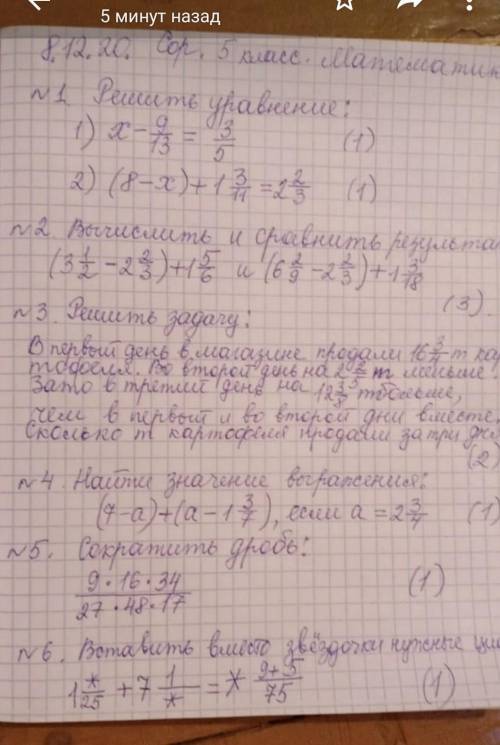 5 минут назад
8.12.20. Сор. 5 класс. Математик
№1 Решить уравнение:
1) x - 9/13 = 3/5 (1)
2) (8-x)+1 3/11 = 2 2/3 (1)
№2. Вычислить и сравнить результа
(3 1/2 - 2 2/3)+1 5/6 и (6 2/9 - 2 2/3)+1 3/18
(3).
№3. Решить задачу:
В первый день в магазине продали т кар
тофеля. Во второй день на т меньше.
Зато в третий день на т больше,
чем в первый и во второй дни вместе.
Сколько т картофеля продали за три дн
(2)
№4. Найти значение выражения:
(7-a)+(a-1 3/7), если a = 2 3/4 (1)
№5. Сократить дробь:
9·16·34/27·48·17 (1)
№6. Вставить вместо звёздочки нужные ци
1 */25 + 7 1/* = * 9+5/75 (1)